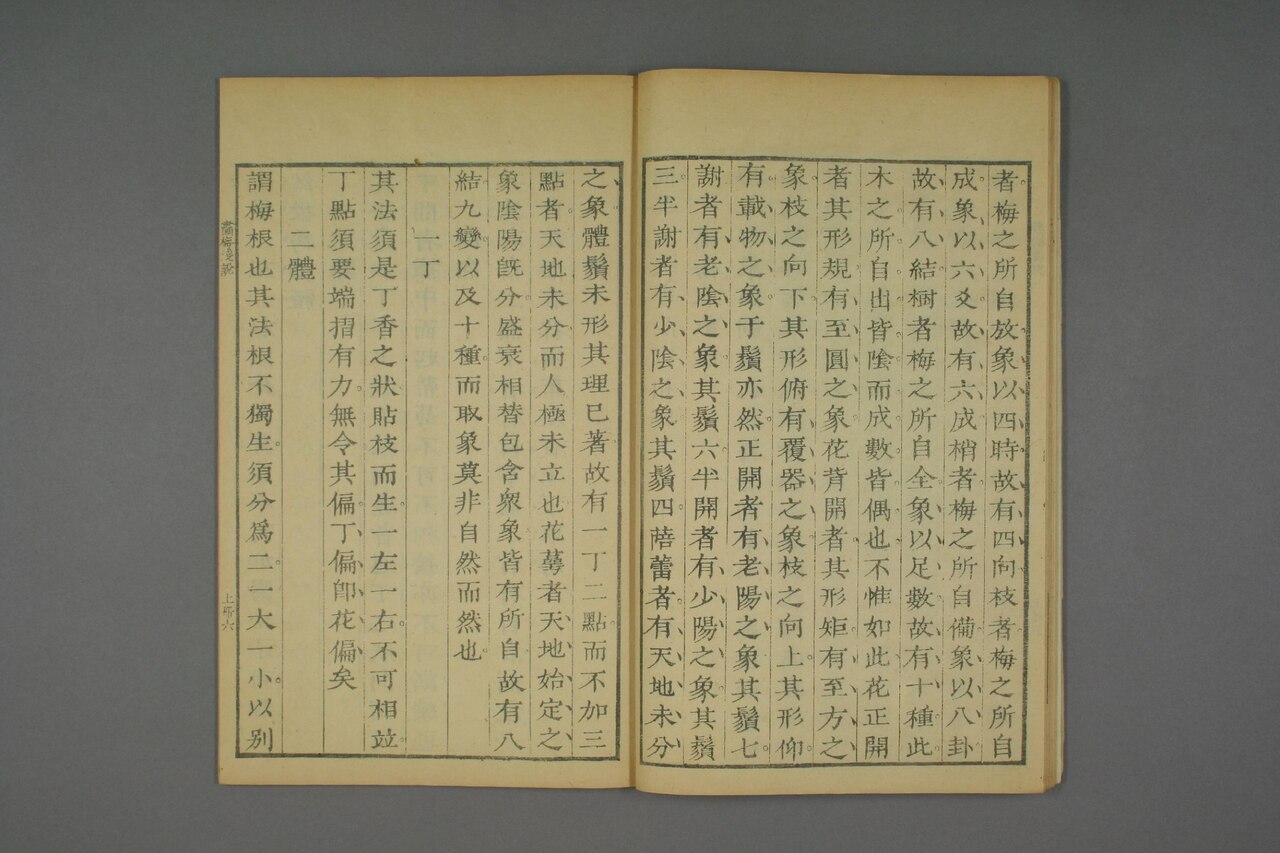 者梅之所自放象以四時故有四向枝者梅之所自
成象以六爻故有六成梢者梅之所自備象以八卦
故有八結樹者梅之所自全象以足數故有十種此
木之所自出皆陰而成數皆偶也不惟如此花正開
者其形規有至圓之象花背開者其形矩有至方之
象枝之向下其形俯有覆器之象枝之向上其形仰
有載物之象于鬚亦然正開者有老陽之象其鬚七
謝者有老陰之象其鬚六半開者有少陽之象其鬚
三半謝者有少陰之象其鬚四蓓蕾者有天地未分
之象體鬚未形其理已著故有一丁二點而不加三
點者天地未分而人極未立也花萼者天地始定之
象陰陽旣分盛衰相替包含衆象皆有所自故有八
結九變以及十種而取象莫非自然而然也
一丁
其法須是丁香之狀貼枝而生一左一右不可相竝
丁點須要端摺有力無令其偏丁偏卽花偏矣
二體
謂梅根也其法根不獨生須分爲二一大一小以別
畫梅淺說
上册六